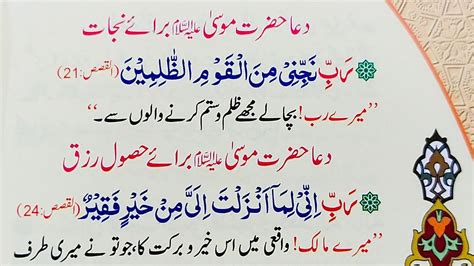 دعا حضرت موسیٰ علیہ السلام برائے نجات
رَبِّ نَجِّنِيْ مِنَ الْقَوْمِ الظّٰلِمِيْنَ (القصص:21)
’’میرے رب! بچالے مجھے ظلم و ستم کرنے والوں سے۔‘‘
دعا حضرت موسیٰ علیہ السلام برائے حصول رزق
رَبِّ اِنِّيْ لِمَاۤ اَنْزَلْتَ اِلَيَّ مِنْ خَيْرٍ فَقِيْرٌ (القصص:24)
’’میرے مالک! واقعی میں اس خیر و برکت کا، جو تو نے میری طرف